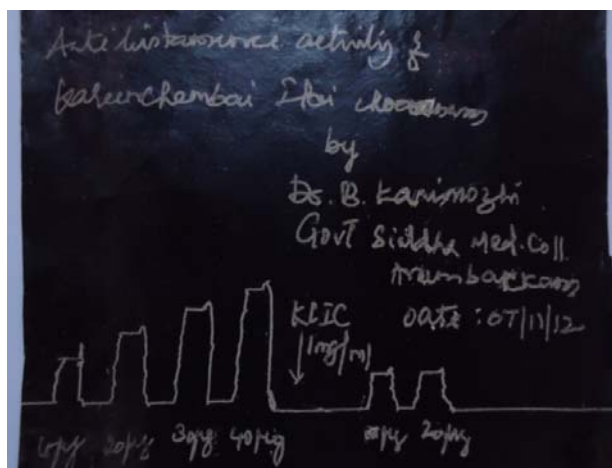 Antihistaminic activity of
Karunchembai Ilai chooranam
by
Dr. B. Kanimozhi
Govt Siddha Med. Coll
Arumbakkam
KCIC DATE : 07/11/12
1mg/ml
10µg 20µg 30µg 40µg 20µg